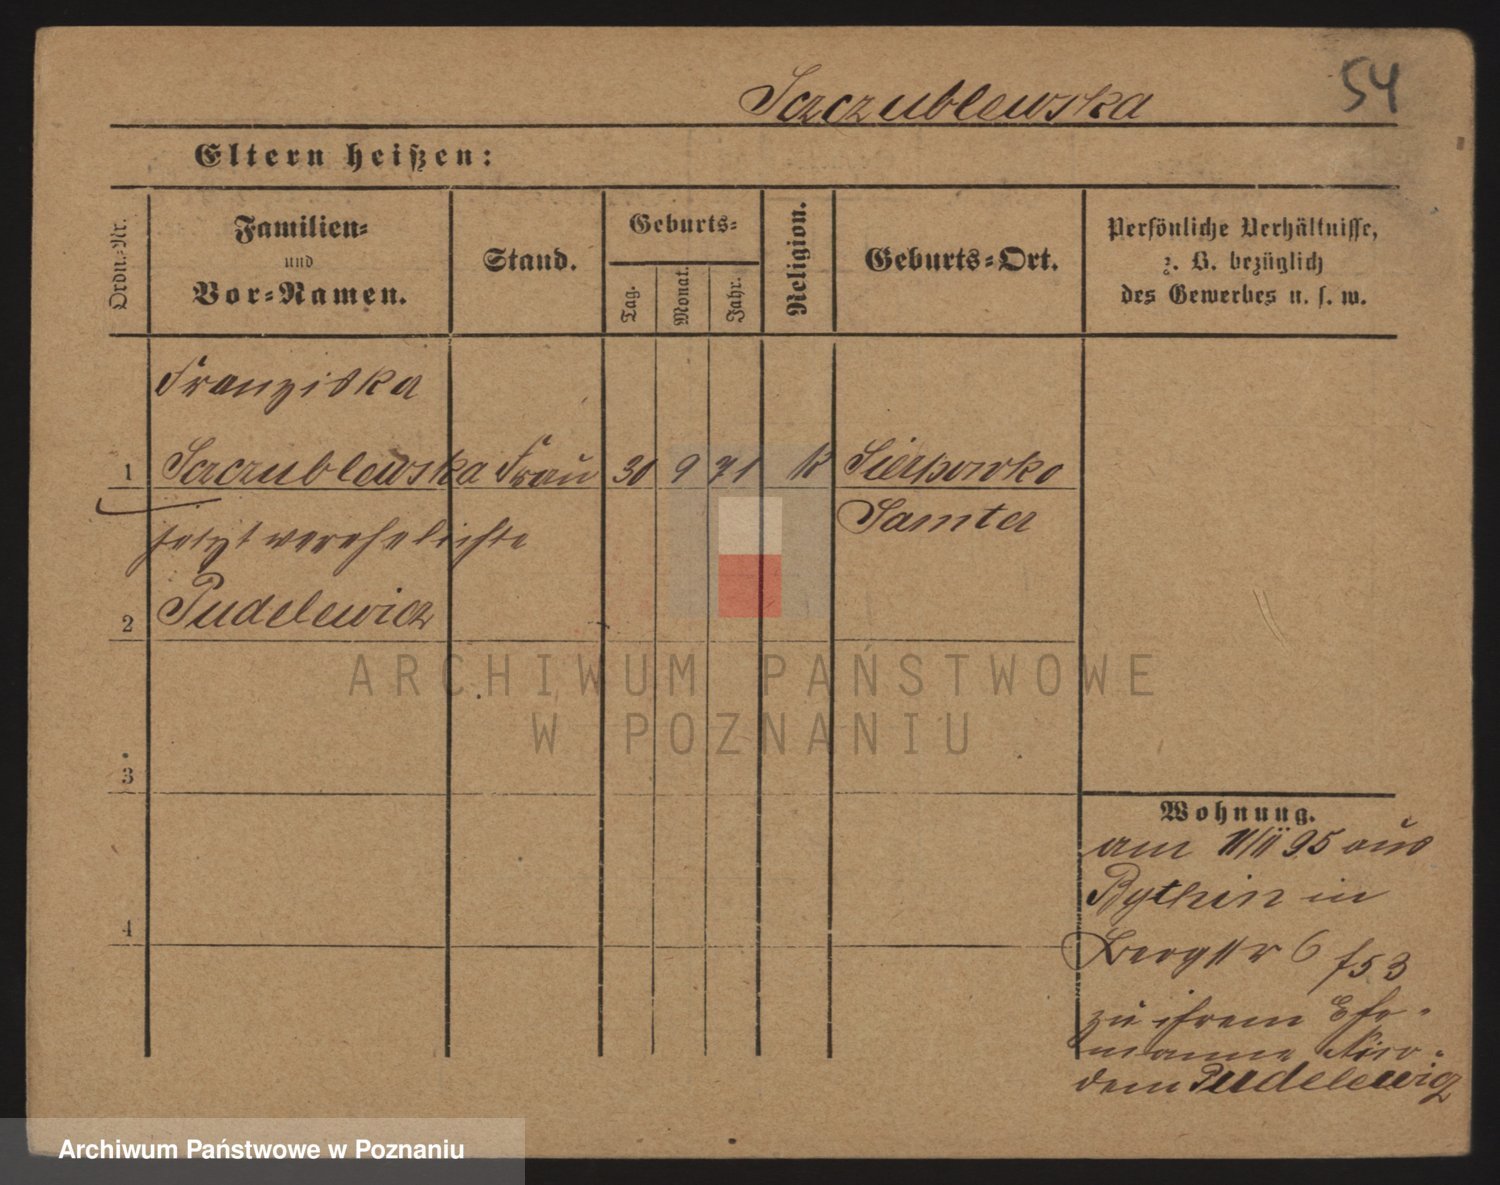 Szczublewska
54
Eltern heißen:
Ordn.-Nr.
Familien-
und
Vor-Namen.
Stand.
Geburts-
Tag.
Monat.
Jahr.
Religion.
Geburts-Ort.
Persönliche Verhältnisse,
z. B. bezüglich
des Gewerbes u. s. w.
Franziska
1 Szczublewska Frau 30 9 71 k
Samter
jetzt verehelichte
2 Pudelewicz
3
4
Wohnung.
am 11/11 95 aus
Bythin in
Bergstr 6 f53
zu ihrem Ehe-
manne Nico-
dem Pudelewicz
ARCHIWUM PAŃSTWOWE
W POZNANIU
Archiwum Państwowe w Poznaniu